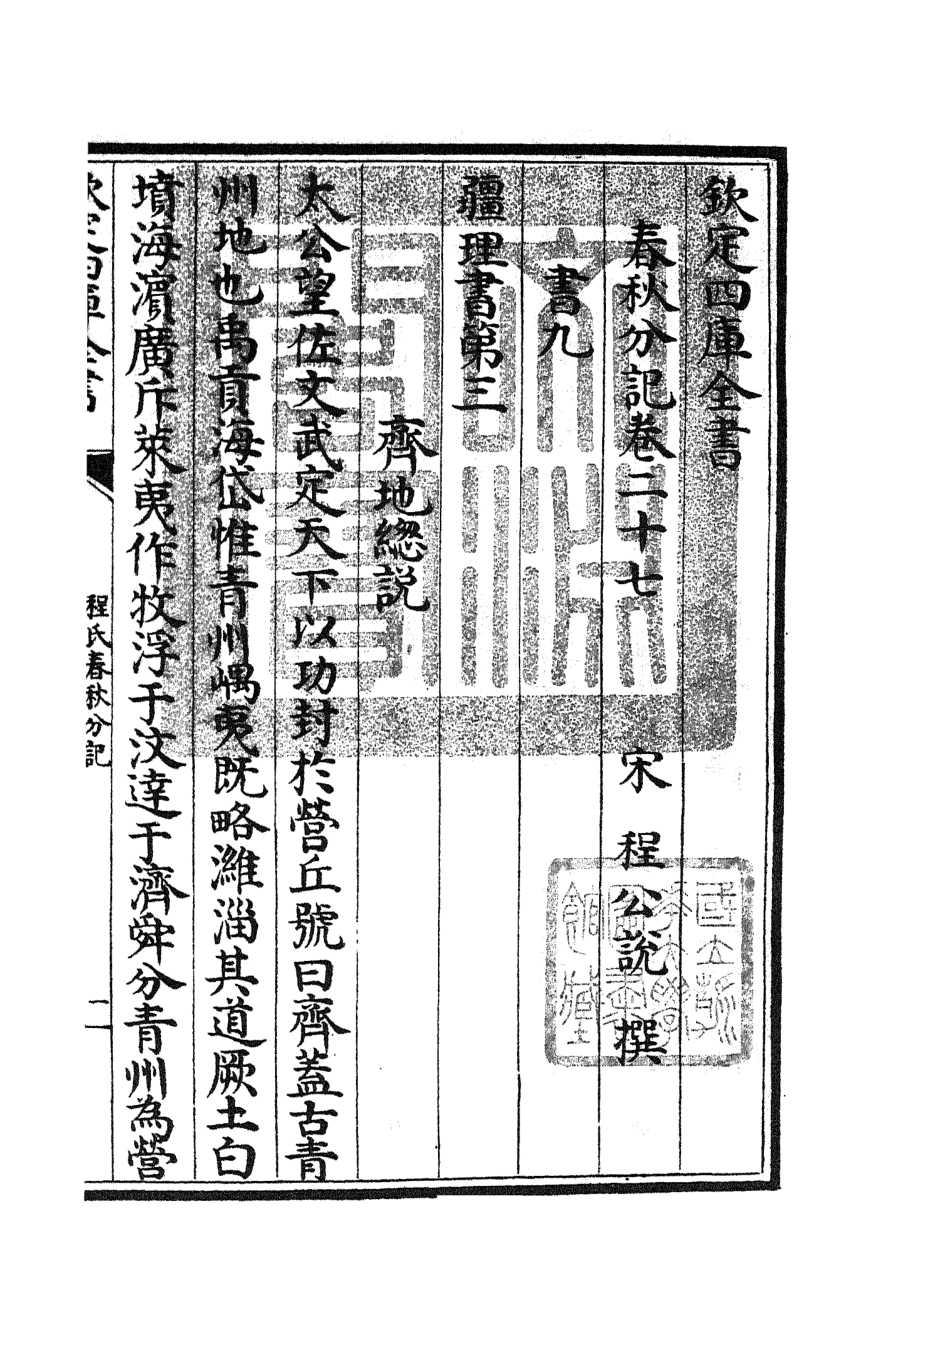 欽定四庫全書
春秋分記卷二十七　宋　程公說　撰
書九
疆理書第三
齊地緫説
太公望佐文武定天下以功封於營丘號曰齊蓋古青
州地也禹貢海岱惟青州嵎夷既略濰淄其道厥土白
墳海濵廣斥萊夷作牧浮于汶達于濟舜分青州為營
欽定四庫全書
程氏春秋分記
二